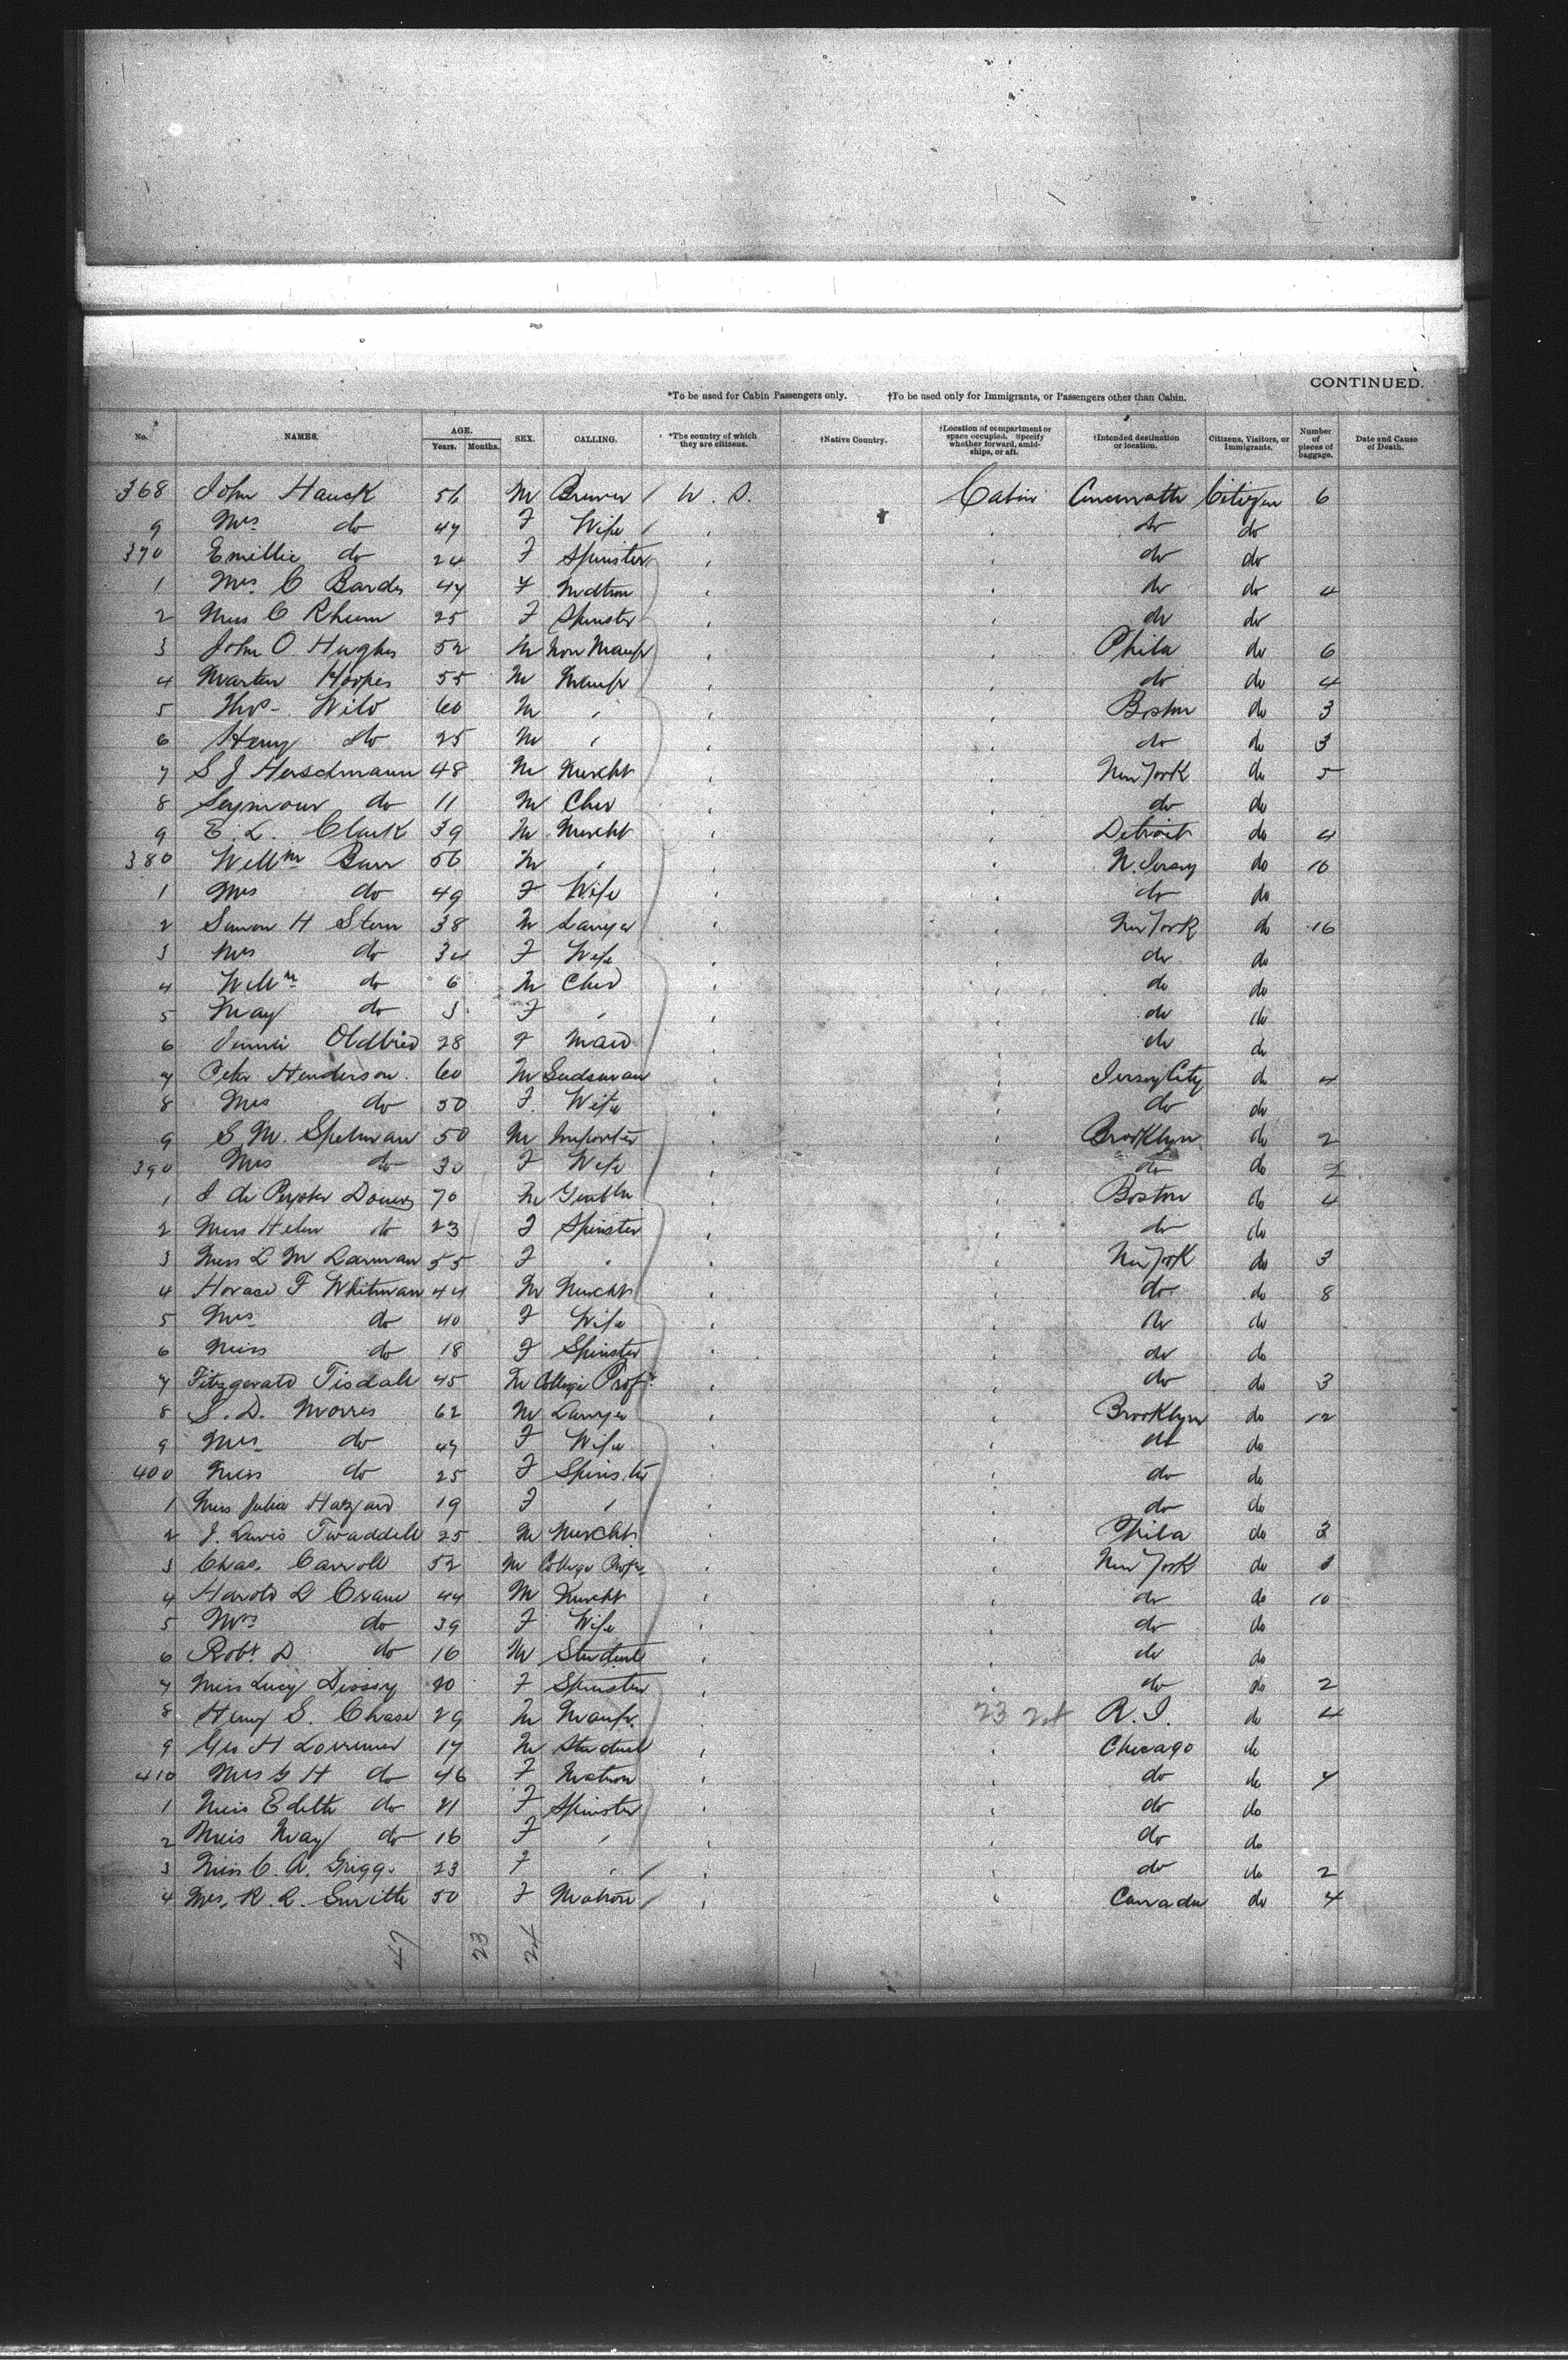 CONTINUED.
*To be used for Cabin Passengers only. †To be used only for Immigrants, or Passengers other than Cabin.
No. NAMES. AGE. Years. Months. SEX. CALLING. *The country of which they are citizens. †Native Country. †Location of compartment or space occupied. Specify whether forward, amidships, or aft. †Intended destination or location. Citizens, Visitors, or Immigrants. Number of pieces of baggage. Date and Cause of Death.
368 John Hauck 56 M Brewer / U. S. Cabin Cincinnatti Citizen 6
9 Mrs do 47 F Wife / " " do do
370 Emillie do 24 F Spinster " " do do
1 Mrs C Bardes 47 F Matron " " do do 4
2 Miss C Rheum 25 F Spinster " " do do
3 John O Hughes 52 M Iron Manufr " " Phila do 6
4 Marten Hoopes 55 M Manufr " " do do 4
5 Thos. Wild 60 M " " " Boston do 3
6 Henry do 25 M " " " do do 3
7 S J Herschmann 48 M Mercht " " New York do 5
8 Seymour do 11 M Child " " do do
9 E. L. Clark 39 M Mercht " " Detroit do 4
380 Willm Barr 56 M " " " N. Jersey do 10
1 Mrs do 49 F Wife " " do do
2 Simon H Stern 38 M Lawyer " " New York do 16
3 Mrs do 34 F Wife " " do do
4 Willm do 6 M Child " " do do
5 May do 3 F " " " do do
6 Oldbied 28 F Maid " " do do
7 Peter Henderson 60 M Seedsman " " Jersey City do 4
8 Mrs do 50 F Wife " " do do
9 S. M. Spelman 50 M Importer " " Brooklyn do 2
390 Mrs do 30 F Wife " " do do
1 J de Peyster 70 M Gentln " " Boston do 4
2 Miss Helen do 23 F Spinster " " do do
3 Miss L M Larman 55 F " " " New York do 3
4 Horace F Whitman 44 M Mercht " " do do 8
5 Mrs do 40 F Wife " " do do
6 Miss do 18 F Spinster " " do do
7 Fitzgerald Tisdall 45 M College Profr " " do do 3
8 S. D. Morris 62 M Lawyer " " Brooklyn do 12
9 Mrs do 47 F Wife " " do do
400 Miss do 25 F Spinster " " do do
1 Miss Julia Hazzard 19 F " " " do do
2 J. Lewis Twaddell 25 M Mercht " " Phila do 3
3 Chas. Carroll 52 M College Profr " " New York do
4 Harold L Crane 44 M Mercht " " do do 10
5 Mrs do 39 F Wife " " do do
6 Robt D do 16 M Student " " do do
7 Miss Lucy Diossy 20 F Spinster " " do do 2
8 Henry S. Chase 29 M Manufr. 23 24 R. I. do 4
9 Geo H Lorrimer 17 M Student " " Chicago do
410 Mrs G H do 46 F Matron " " do do 7
1 Miss Edith do 21 F Spinster " " do do
2 Miss May do 16 F " " " do do
3 Miss C. A. Griggs 23 F " / " " do do 2
4 Mrs. R. R. Smith 50 F Matron / " " Canada do 4
47 23 24